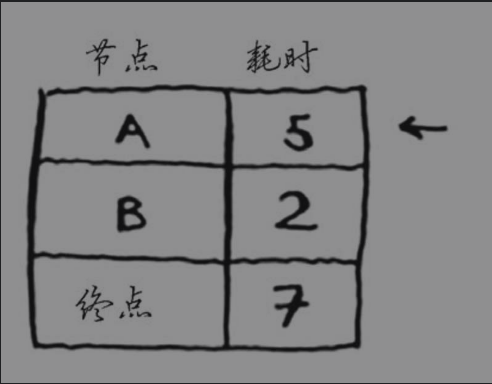 节点 耗时
A 5
B 2
终点 7